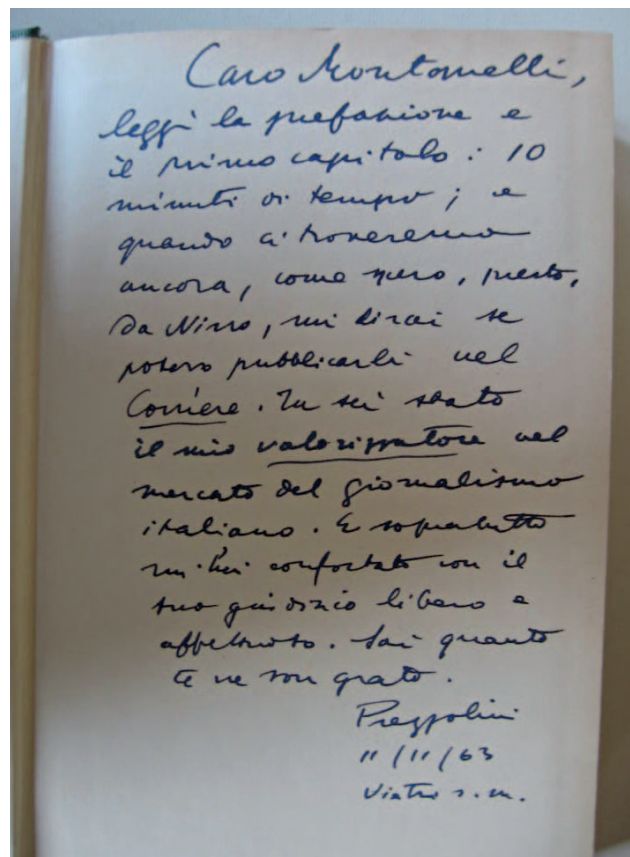 Caro Montanelli,
leggi la prefazione e
il primo capitolo: 10
minuti di tempo; e
quando ci troveremo
ancora, come spero, presto,
Da Nino, mi dirai se
potevo pubblicarli nel
Corriere. Tu sei stato
il mio valorizzatore nel
mercato del giornalismo
italiano. E soprattutto
mi hai confortato con il
tuo giudizio libero e
affettuoso. Sai quanto
te ne son grato.
Prezzolini
11/11/63
Vietri s.m.